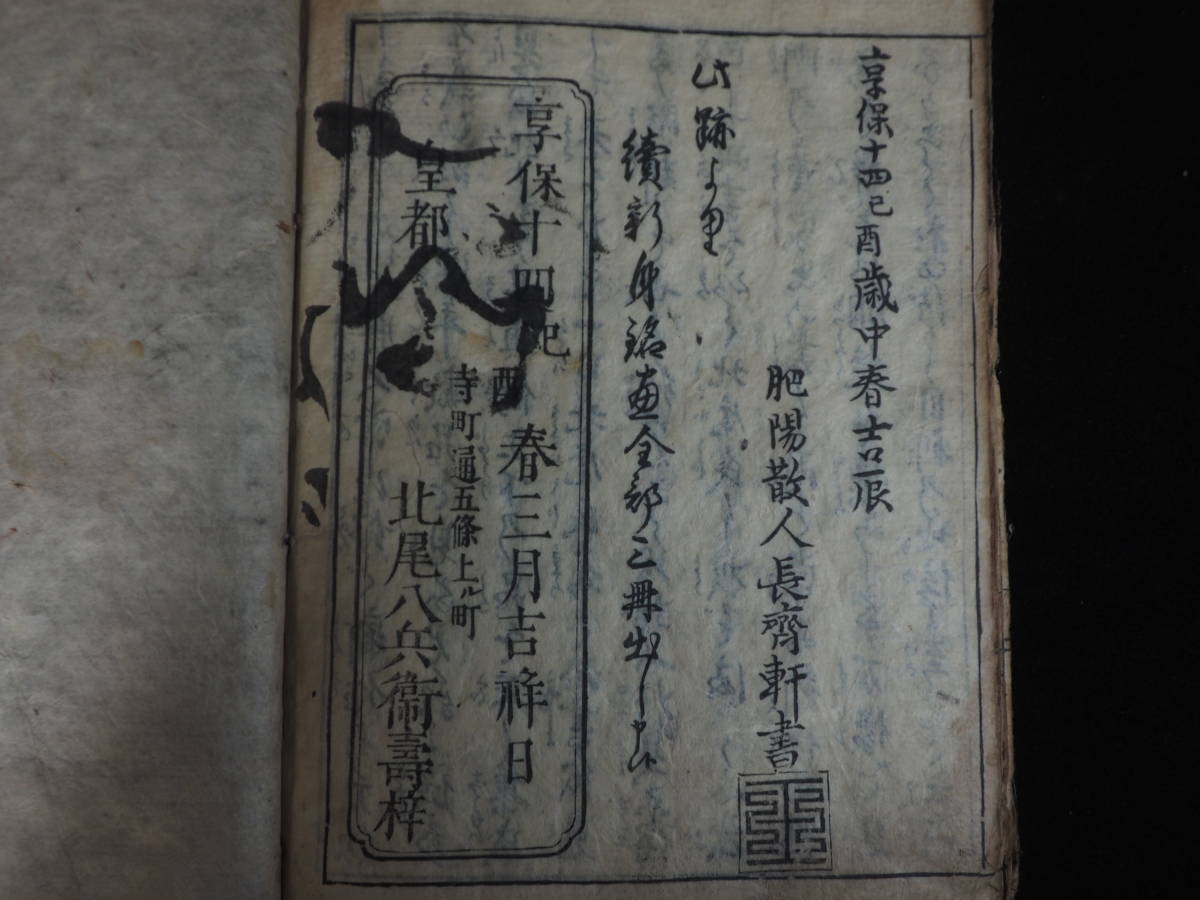 享保十四己酉歳中春吉辰
肥陽散人長齊軒書
此跡より
續新身銘盡全部三冊出し申候
享保十四己酉春三月吉祥日
皇都
寺町通五條上ル町
北尾八兵衞壽梓